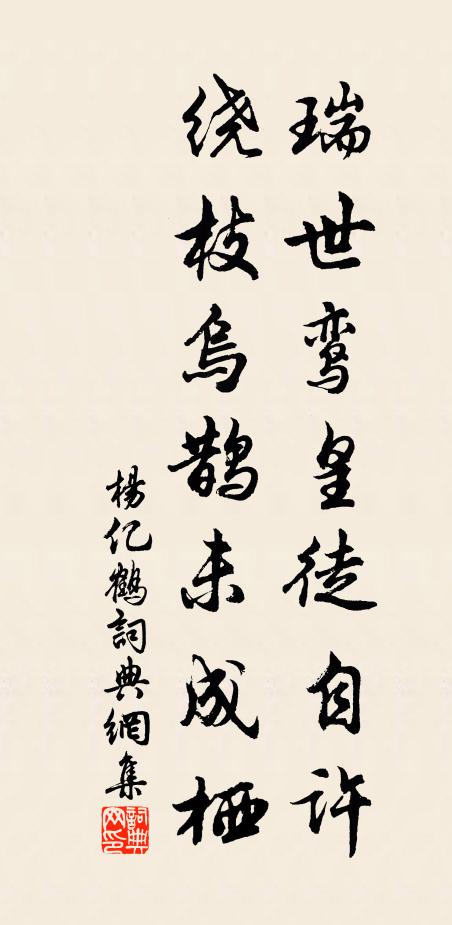 瑞世鸾皇徒自许
绕枝乌鹊未成栖
楊亿《鹤》詞典網集
詞典
网印